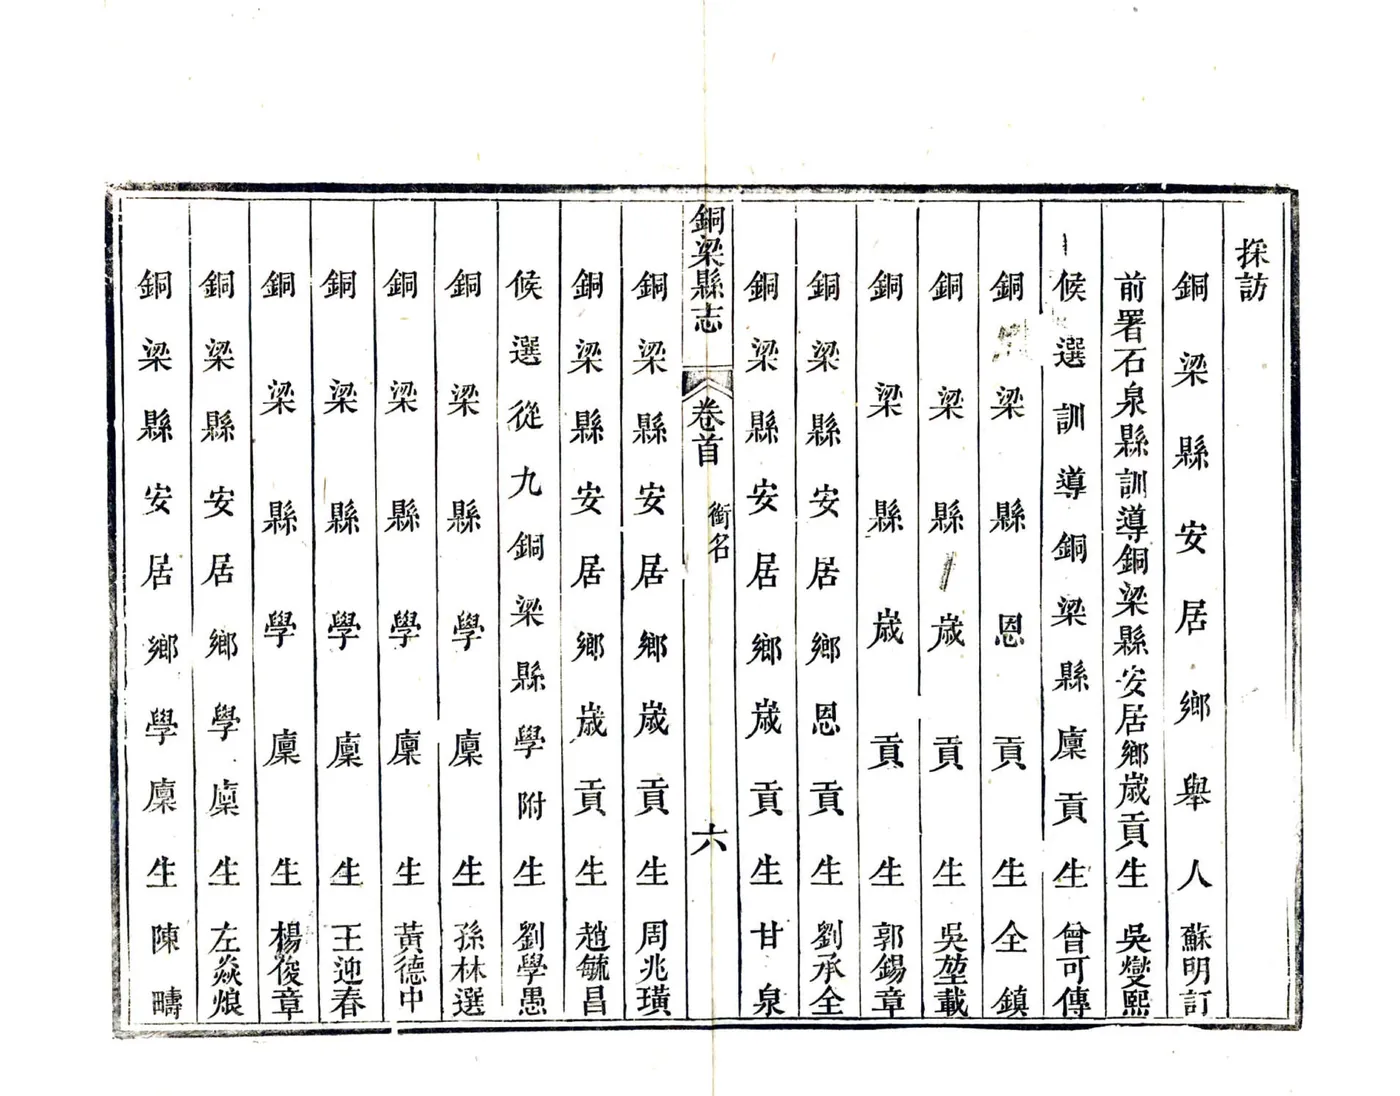 採訪
銅梁縣安居鄉舉人蘇明訂
前署石泉縣訓導銅梁縣安居鄉歲貢生吳燮熙
候選訓導銅梁縣廩貢生曾可傳
銅梁縣恩貢生全鎮
銅梁縣歲貢生吳堃載
銅梁縣歲貢生郭錫章
銅梁縣安居鄉恩貢生劉承全
銅梁縣安居鄉歲貢生甘泉
銅梁縣志
卷首
銜名
六
銅梁縣安居鄉歲貢生周兆璜
銅梁縣安居鄉歲貢生趙毓昌
候選從九銅梁縣學附生劉學愚
銅梁縣學廩生孫林選
銅梁縣學廩生黃德中
銅梁縣學廩生王迎春
銅梁縣學廩生楊俊章
銅梁縣安居鄉學廩生左焱烺
銅梁縣安居鄉學廩生陳疇